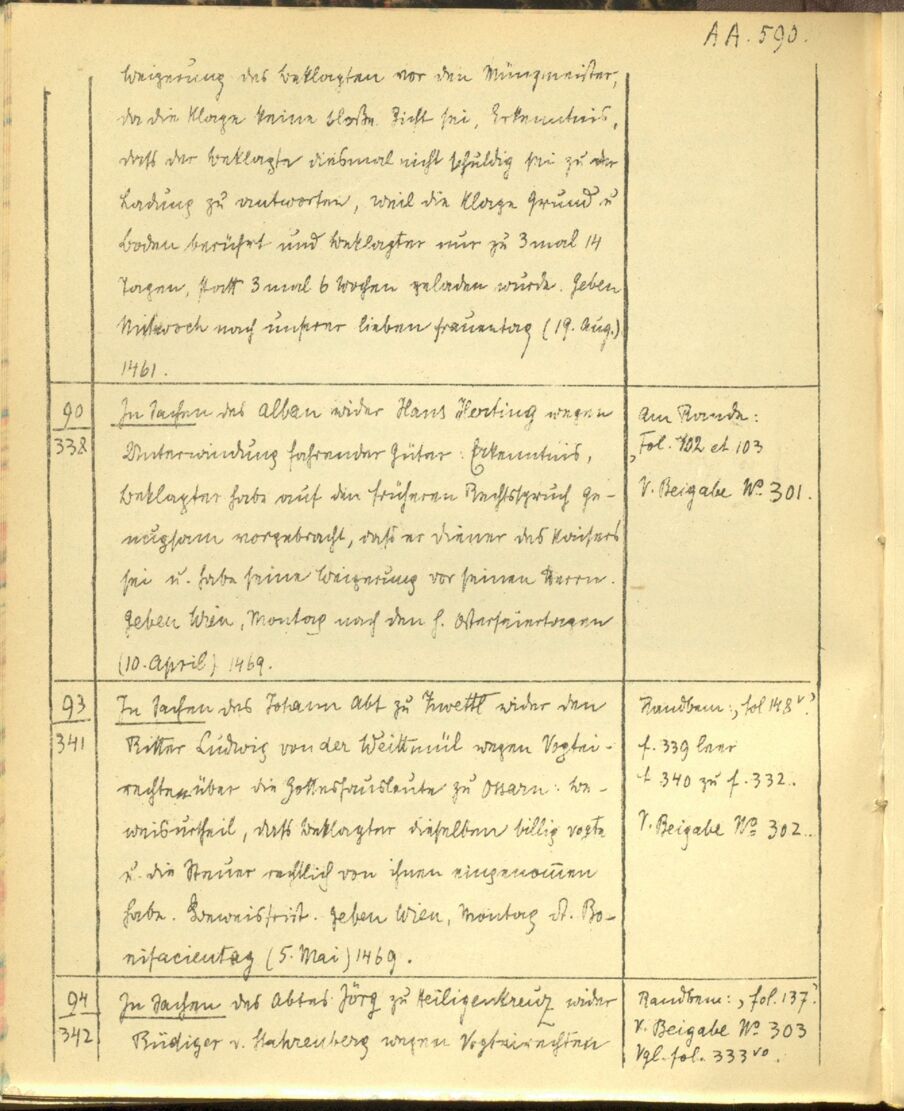 AA. 590.
Weigerung des Beklagten vor den Münzmeister,
da die Klage keine bloße Zicht sei, Erkenntnis,
daß der Beklagte diesmal nicht schuldig sei zu der
Ladung zu antworten, weil die Klage Grund u
Boden berührt und Beklagter nur zu 3 mal 14
Tagen, statt 3 mal 6 Wochen geladen wurde. Geben
Mittwoch nach unserer lieben Frauentag (19. Aug.)
1461.
90
338
In Sachen des Alban wider Hans Herting wegen
Unterwindung fahrender Güter: Erkenntnis,
Beklagter habe auf den früheren Rechtsspruch ge-
nugsam vorgebracht, daß er Diener des Kaisers
sei u. habe seine Weigerung vor seinen Herrn.
Geben Wien, Montag nach den h. Osterfeiertagen
(10. April) 1469.
Am Rande:
„Fol. 102 et 103
V. Beigabe No 301.
93
341
In Sachen des Johann Abt zu Zwettl wider den
Ritter Ludwig von der Weittmül wegen Vogtei-
rechten über die Gotteshausleute zu Ossarn: Be-
weisurtheil, daß Beklagter dieselben billig vogte
u. die Steuer rechtlich von ihnen eingenom̅en
habe. Beweisfrist. Geben Wien, Montag St. Bo-
nifacientag (5. Mai) 1469.
Randbem: „fol 148 v"
f. 339 leer
f 340 zu f. 332.
V. Beigabe No 302.
94
342
In Sachen des Abtes Jörg zu Heiligenkreuz wider
Rüdiger v. Stahrenberg wegen Vogteirechten
Randbem: „fol. 137"
V. Beigabe No 303
Vgl. fol. 333 vo.